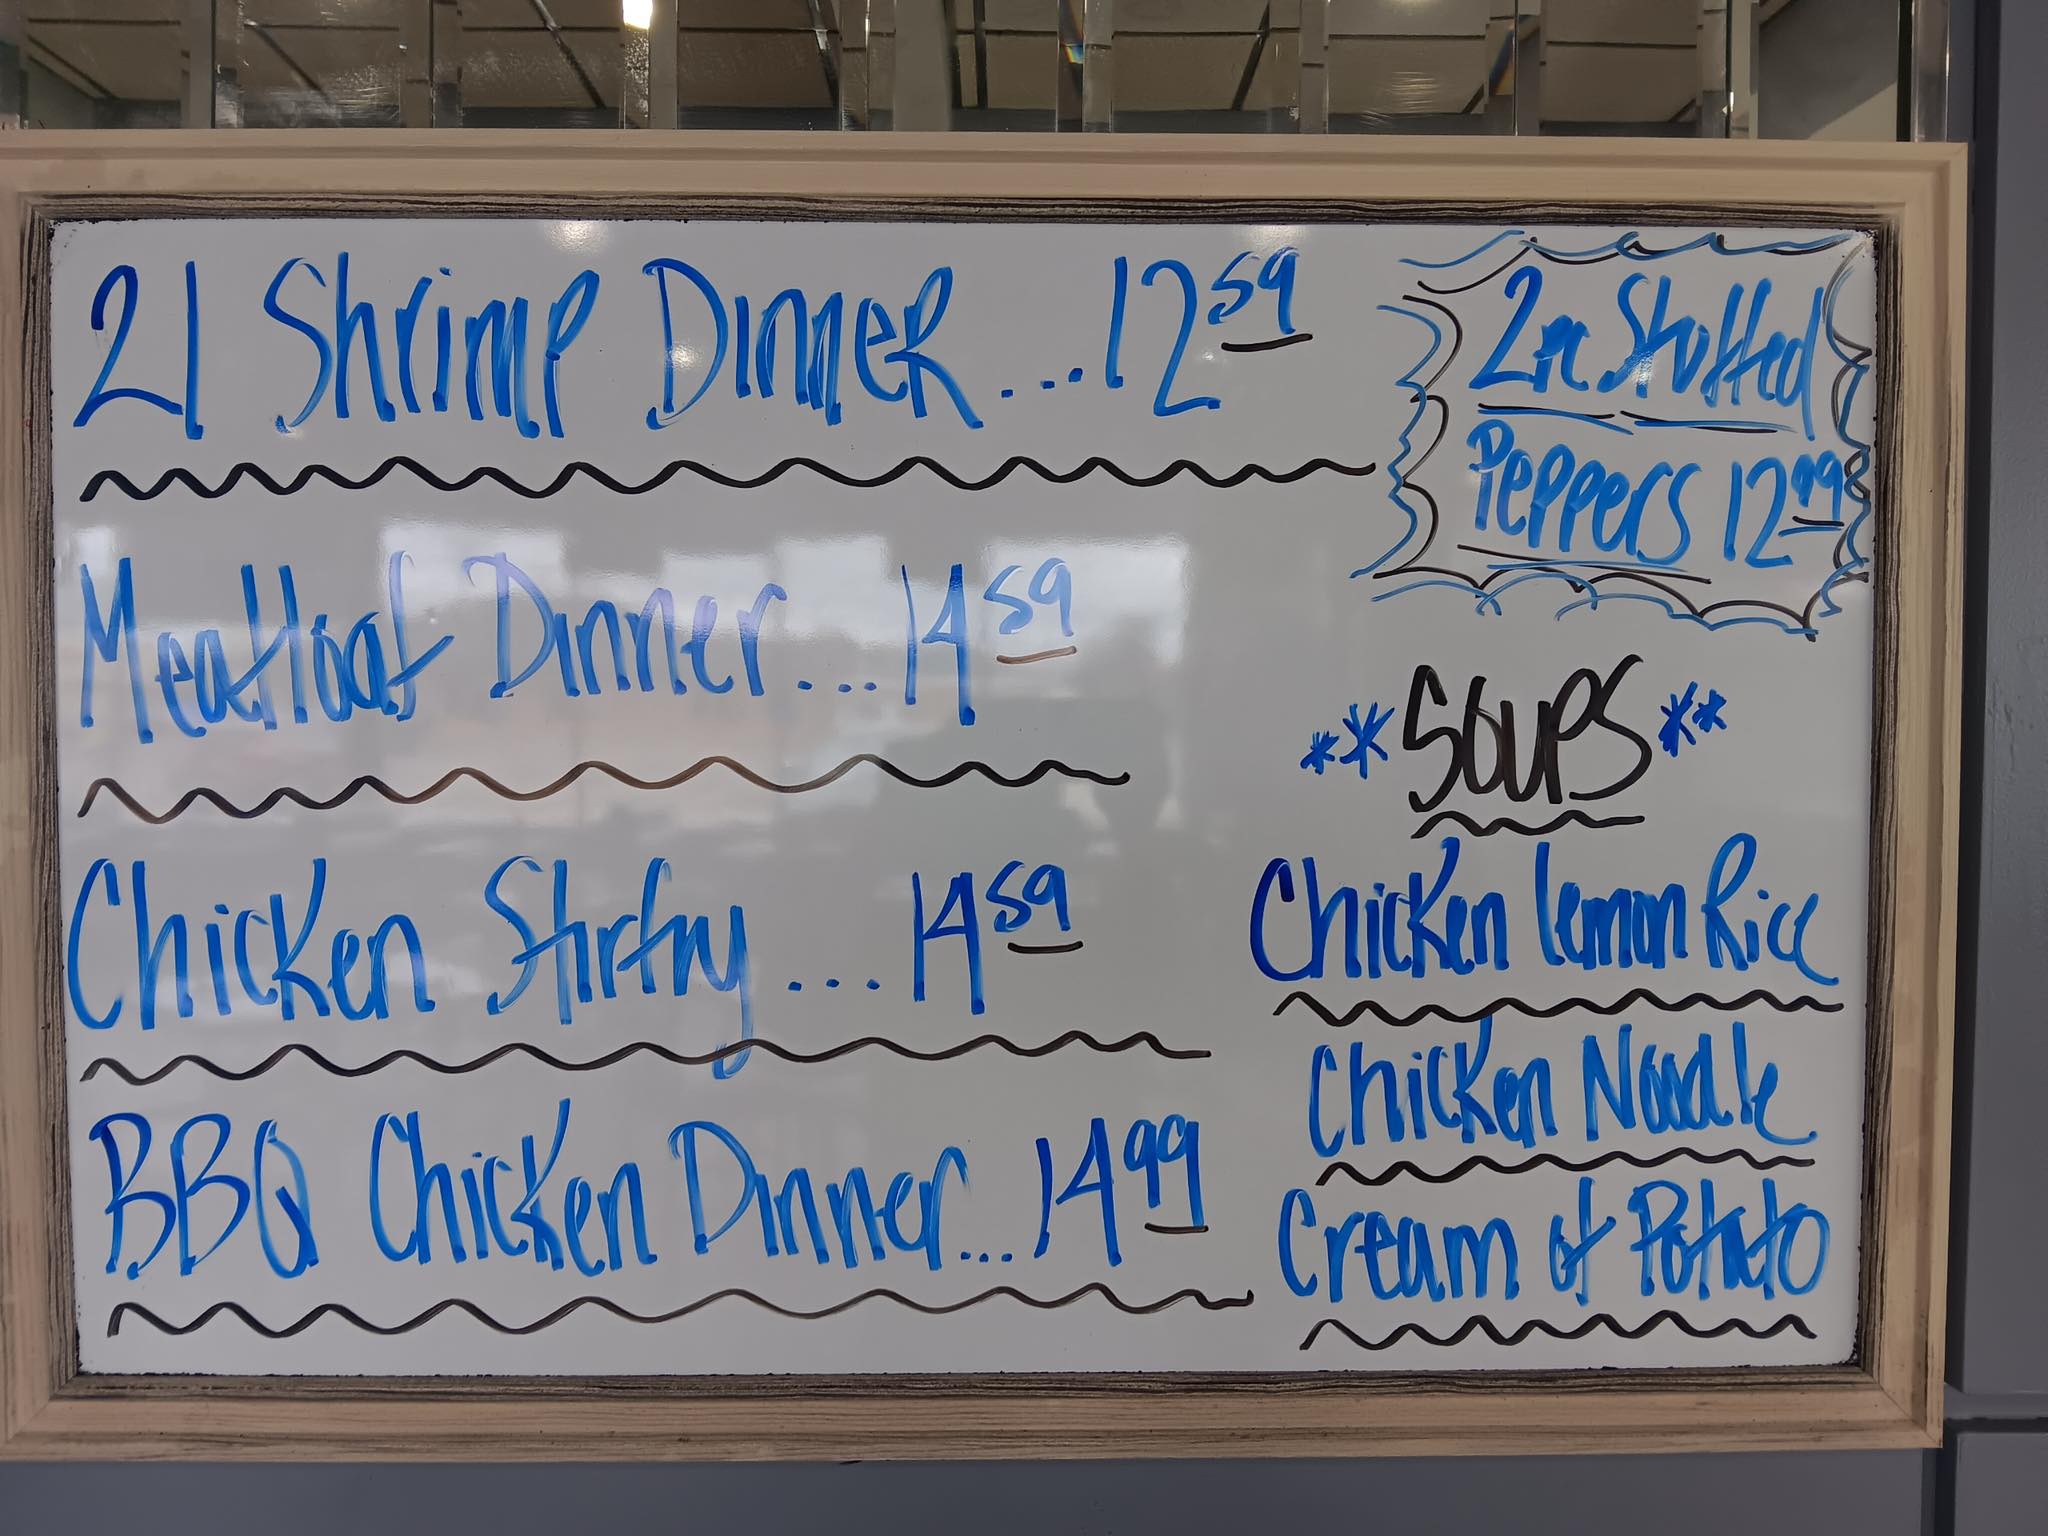 21 Shrimp Dinner...12 59
Meatloaf Dinner...14 59
Chicken Stirfry...14 59
BBQ Chicken Dinner...14 99
2pc Stuffed
Peppers 12 99
**Soups**
Chicken Lemon Rice
Chicken Noodle
Cream of Potato